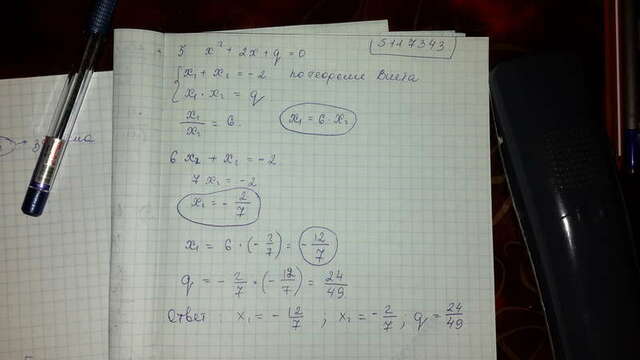 5 x² + 2x + q = 0
5117343
{ x₁ + x₂ = -2 по теореме Виета
x₁ · x₂ = q
x₁/x₂ = 6. x₁ = 6 · x₂
6 x₂ + x₂ = -2
7 x₂ = -2
x₂ = - 2/7
x₁ = 6 · (- 2/7) = - 12/7
q = - 2/7 · (- 12/7) = 24/49
Ответ : x₁ = - 12/7 ; x₂ = - 2/7 ; q = 24/49